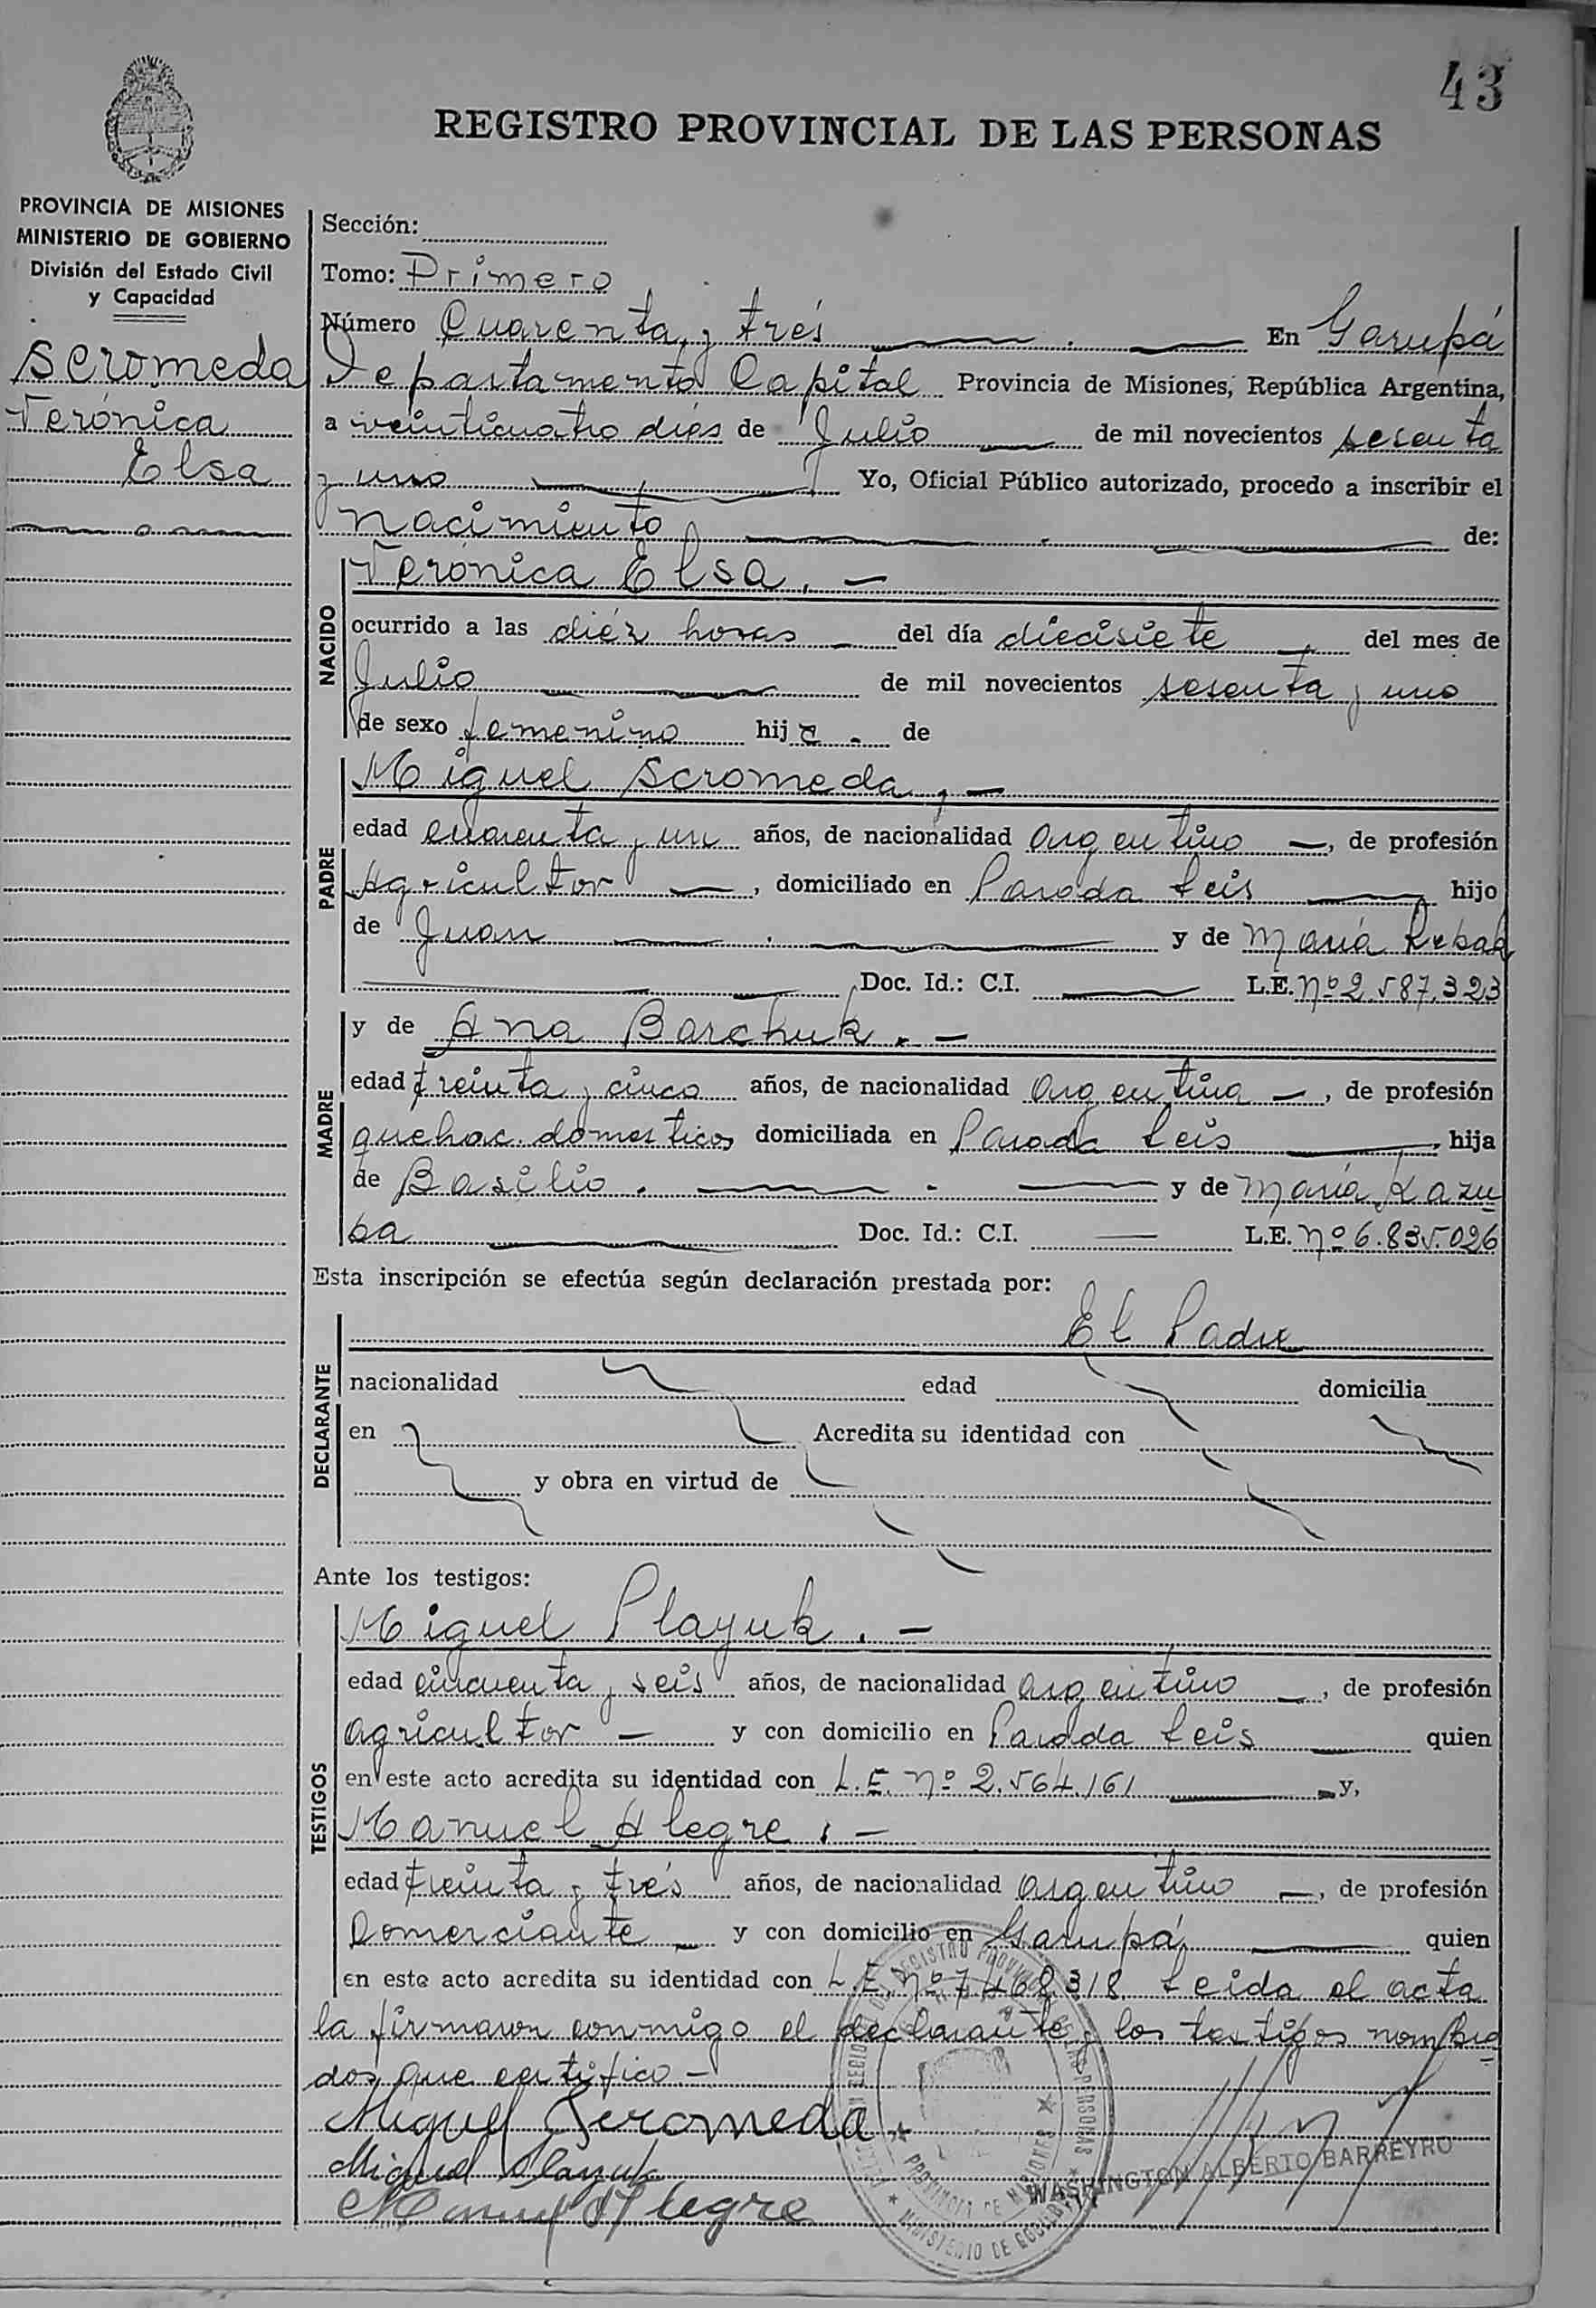 43
REGISTRO PROVINCIAL DE LAS PERSONAS
PROVINCIA DE MISIONES
MINISTERIO DE GOBIERNO
División del Estado Civil
y Capacidad
Scromeda
Verónica
Elsa
Sección:
Tomo: Primero
Número Cuarenta y trés En Garupá
Departamento Capital Provincia de Misiones, República Argentina,
a veinticuatro dias de Julio de mil novecientos sesenta
y uno Yo, Oficial Público autorizado, procedo a inscribir el
nacimiento de:
NACIDO
Verónica Elsa. -
ocurrido a las diéz horas del día diecisiete del mes de
Julio de mil novecientos sesenta y uno
de sexo femenino hija. de
PADRE
Miguel Scromeda, -
edad cuarenta y un años, de nacionalidad argentino, de profesión
Agricultor, domiciliado en Parada Leis hijo
de Juan y de María Rebak
Doc. Id.: C.I. L.E. nº 2.587.323
MADRE
y de Ana Barchuk. -
edad treinta y cinco años, de nacionalidad argentina, de profesión
quehac. domesticos domiciliada en Parada Leis, hija
de Basilio. y de María Kazu
ba Doc. Id.: C.I. L.E. nº 6.835.026
Esta inscripción se efectúa según declaración prestada por:
DECLARANTE
El Padre
nacionalidad edad domicilia
en Acredita su identidad con
y obra en virtud de
Ante los testigos:
TESTIGOS
Miguel Playuk. -
edad cincuenta y seis años, de nacionalidad argentino, de profesión
agricultor y con domicilio en Parada Leis quien
en este acto acredita su identidad con L.E. nº 2.564.161 y,
Manuel Alegre. -
edad treinta y trés años, de nacionalidad argentino, de profesión
Comerciante y con domicilio en Garupá, quien
en este acto acredita su identidad con L.E. nº 7.468.318. Leida el acta
la firmaron conmigo el declarante y los testigos nombra
dos que certifico. -
Miguel Scromeda
Miguel Playuk
Manuel Alegre
WASHINGTON ALBERTO BARREYRO
PROVINCIA DE MISIONES
MINISTERIO DE GOBIERNO